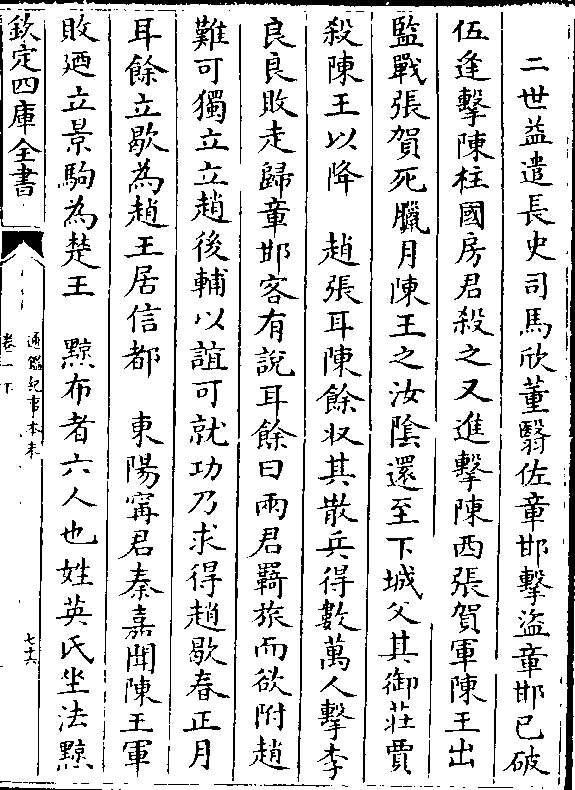 二世益遣長史司馬欣董翳佐章邯擊盜章邯已破
伍逢擊陳柱國房君殺之又進擊陳西張賀軍陳王出
監戰張賀死臘月陳王之汝隂還至下城父其御莊賈
殺陳王以降　趙張耳陳餘収其散兵得數萬人擊李
良良敗走歸章邯客有說耳餘曰兩君羇旅而欲附趙
難可獨立立趙後輔以誼可就功乃求得趙歇春正月
耳餘立歇為趙王居信都　東陽甯君秦嘉聞陳王軍
敗廼立景駒為楚王　黥布者六人也姓英氏坐法黥
欽定四庫全書
通鑑紀事本末
卷二下
七十六